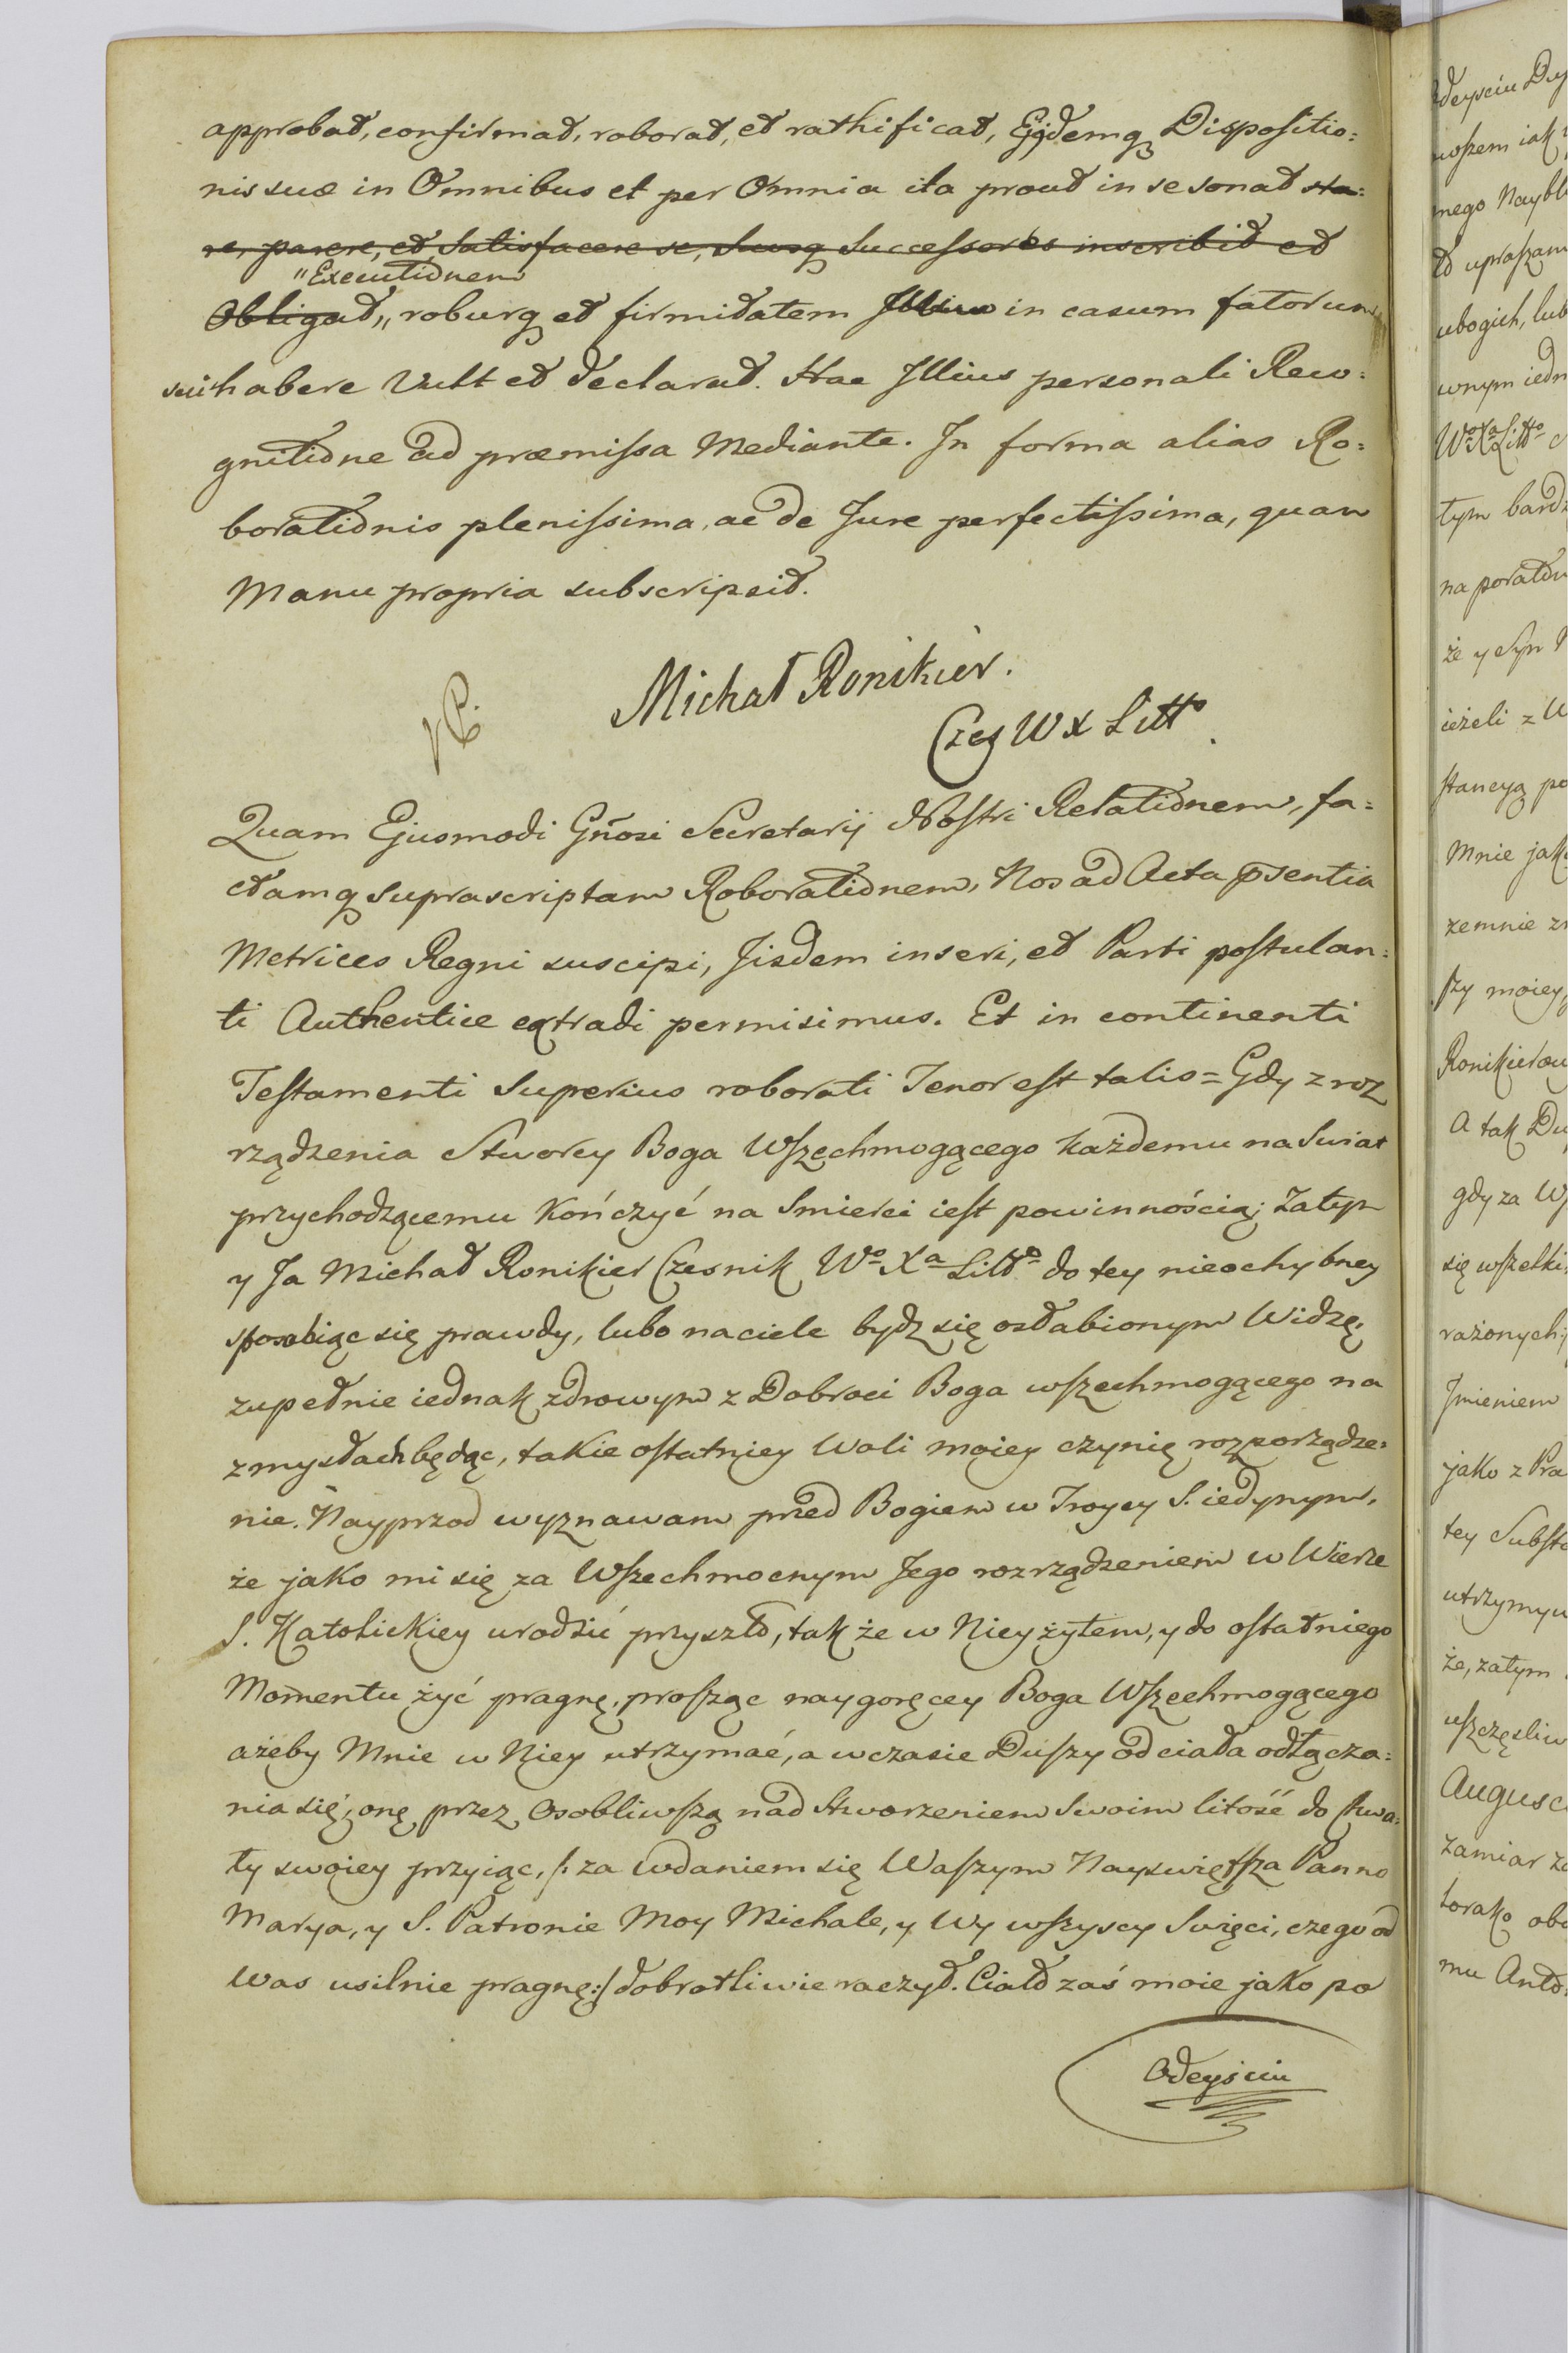 approbat, confirmat, roborat, et rathificat, Ejdemq Dispositio=
nis suæ in Omnibus et per Omnia ita prout in se sonat sta=
re, parere, et Satisfacere se, Suosq Successores inscribit et
"Executionem
Obligat," roburq et firmitatem Illius in casum fatorum
sui habere Vult et declarat. Hac Illius personali Reco=
gnitione ad præmissa Mediante. In forma alias Ro=
borationis plenissima, ac de Jure perfectissima, quam
Manu propria subscripsit.
Michał Ronikier.
Czes W X Litt°.
Quam Ejusmodi Gnosi Secretarij Nostri Relationem, fa=
ctamq suprascriptam Roborationem, Nos ad Acta psentia
Metrices Regni suscipi, Iisdem inseri, et Parti postulan=
ti Authentice extradi permisimus. Et in continenti
Testamenti Superius roborati Tenor est talis = Gdy z roz
rządzenia Stworcy Boga Wszechmogącego każdemu na Swiat
przychodzącemu Kończyć na Smierci iest powinnością; Zatym
y Ja Michał Ronikier Czesnik W° Xa Litt° do tey nieochybney
sposobiąc się prawdy, lubo na ciele bydz się osłabionym Widzę,
zupełnie iednak zdrowym z Dobroci Boga wszechmogącego na
zmysłach będąc, takie ostatniey Woli moiey czynię rozporządze=
nie. Nayprzod wyznawam przed Bogiem w Troycy S. iedynym,
że jako mi się za Wszechmocnym Jego rozrządzeniem w Wierze
S. Katolickiey urodzić przyszło, tak że w Niey żyłem, y do ostatniego
Momentu żyć pragnę, prosząc naygoręcey Boga Wszechmogącego
ażeby Mnie w Niey utrzymać, a w czasie Duszy od ciała odłącza=
nia się, onę przez Osobliwszą nad Stworzeniem Swoim litość do Chwa=
ły swoiey przyiąc, /: za wdaniem się Waszym Nayswiętsza Panno
Marya, y S. Patronie Moy Michale, y Wy wszyscy Swięci, czego od
Was usilnie pragnę:/ dobrotliwie raczył. Ciało zaś moie jako po
Odeysciu